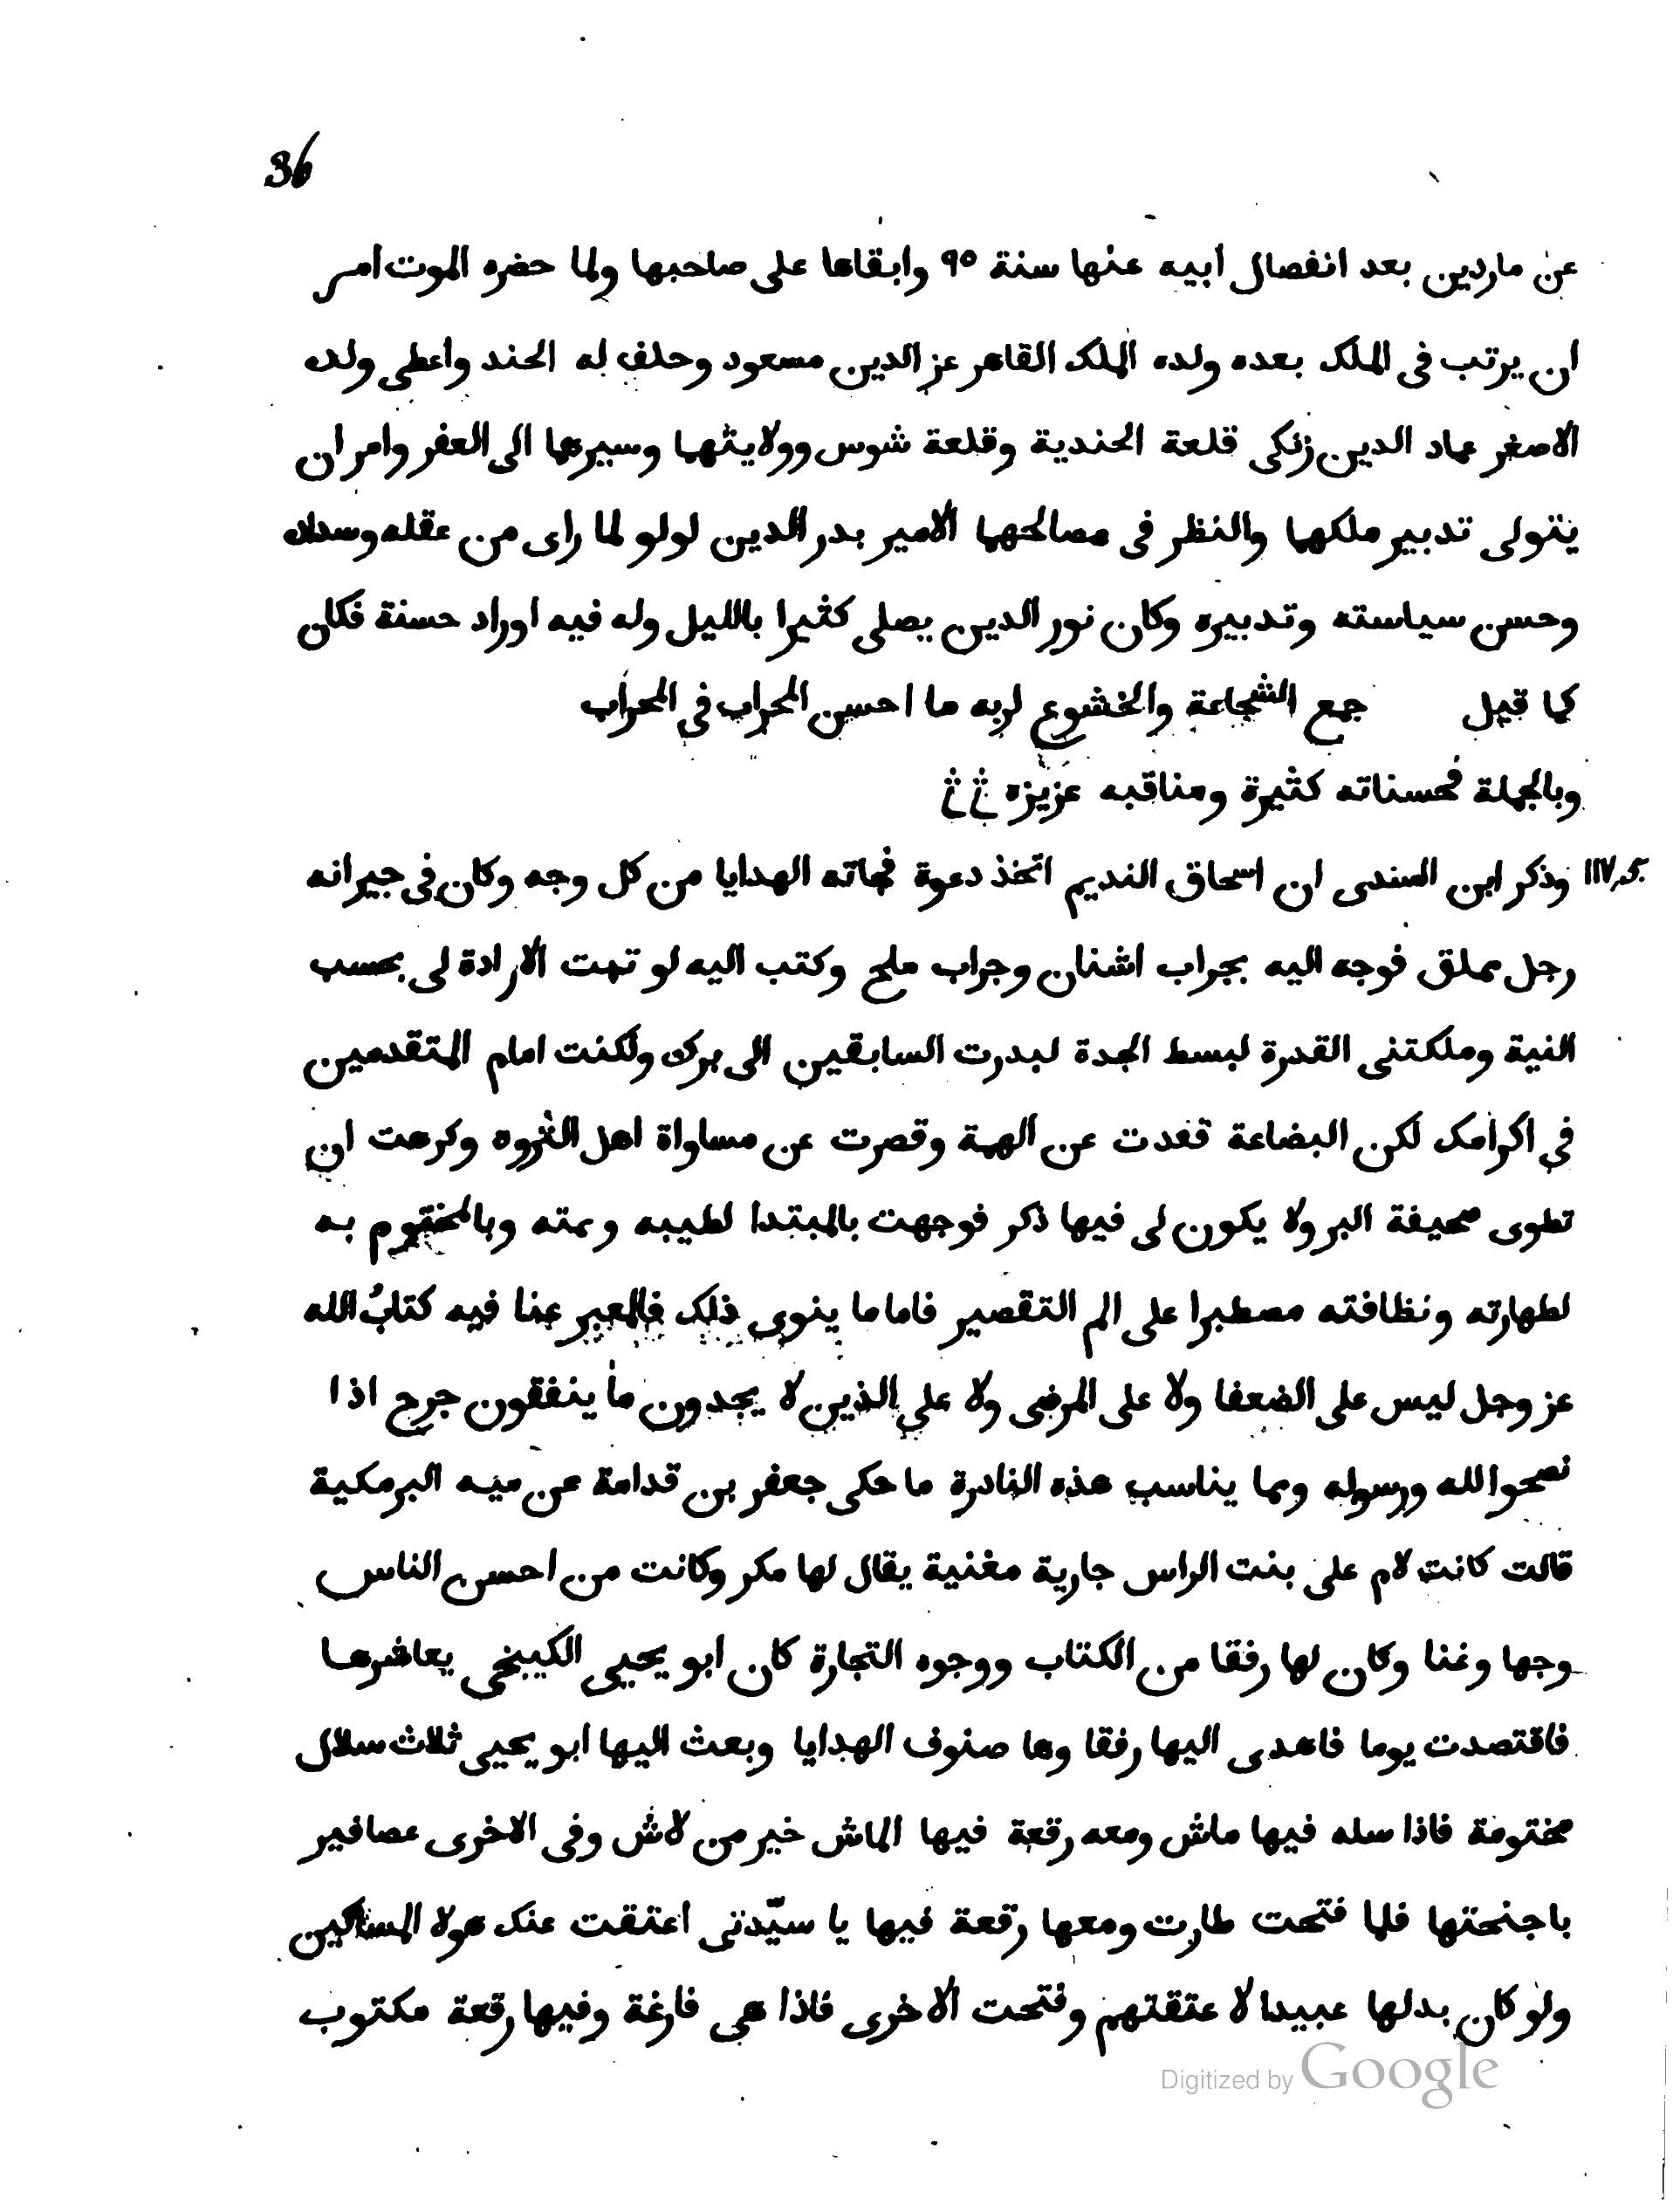 36
عن ماردين بعد انفصال ابيه عنها سنة ٩٥ وابقاها على صاحبها ولما حضره الموت امر
ان يرتب فى الملك بعده ولده الملك القاهر عز الدين مسعود وحلف له الحند واعطى ولده
الاصغر عماد الدين زنكى قلعة الحندية وقلعة شوس وولايتهما وسيرهما الى العفر وامر ان
يتولى تدبير ملكهما والنظر فى مصالحهما الامير بدر الدين لولو لما راى من عقله وسداده
وحسن سياسته وتدبيره وكان نور الدين يصلى كثيرا بالليل وله فيه اوراد حسنة فكان
كما قيل جمع الشجاعة والخشوع لربه ما احسن المحراب فى المحراب
وبالجملة فحسناته كثيرة ومناقبه عزيزه
وذكر ابن السندى ان اسحاق النديم اتخذ دعوة فجاته الهدايا من كل وجه وكان فى جيرانه
رجل مملق فوجه اليه بجراب اشنان وجراب ملح وكتب اليه لو تمت الارادة لى بحسب
النية وملكتنى القدرة لبسط الجدة لبدرت السابقين الى برك ولكنت امام المتقدمين
فى اكرامك لكن البضاعة قعدت عن الهمة وقصرت عن مساواة اهل الثروه وكرهت ان
تطوى صحيفة البر ولا يكون لى فيها ذكر فوجهت بالمبتدا لطيبه ويمته وبالمختوم به
لطهارته ونظافته مصطبرا على الم التقصير فاما ما ينوى ذلك فالمعبر عنا فيه كتابُ الله
عز وجل ليس على الضعفا ولا على المرضى ولا على الذين لا يجدون ما ينفقون حرج اذا
نصحوا لله ورسوله ومما يناسب هذه النادرة ما حكى جعفر بن قدامة عن ميه البرمكية
قالت كانت لام على بنت الراس جارية مغنية يقال لها مكر وكانت من احسن الناس
وجها وغنا وكان لها رفقا من الكتاب ووجوه التجارة كان ابو يحيى الكيبخى يعاشرها
فاقتصدت يوما فاهدى اليها رفقا وها صنوف الهدايا وبعث اليها ابو يحيى ثلاث سلال
مختومة فاذا سله فيها ماش ومعه رقعة فيها الماش خير من لاش وفى الاخرى عصافير
باجنحتها فلما فتحت طارت ومعها رقعة فيها يا سيّدتى اعتقت عنك هولا المساكين
ولو كان بدلها عبيدا لاعتقتهم وفتحت الاخرى فاذا هى فارغة وفيها رقعة مكتوب
Digitized by Google